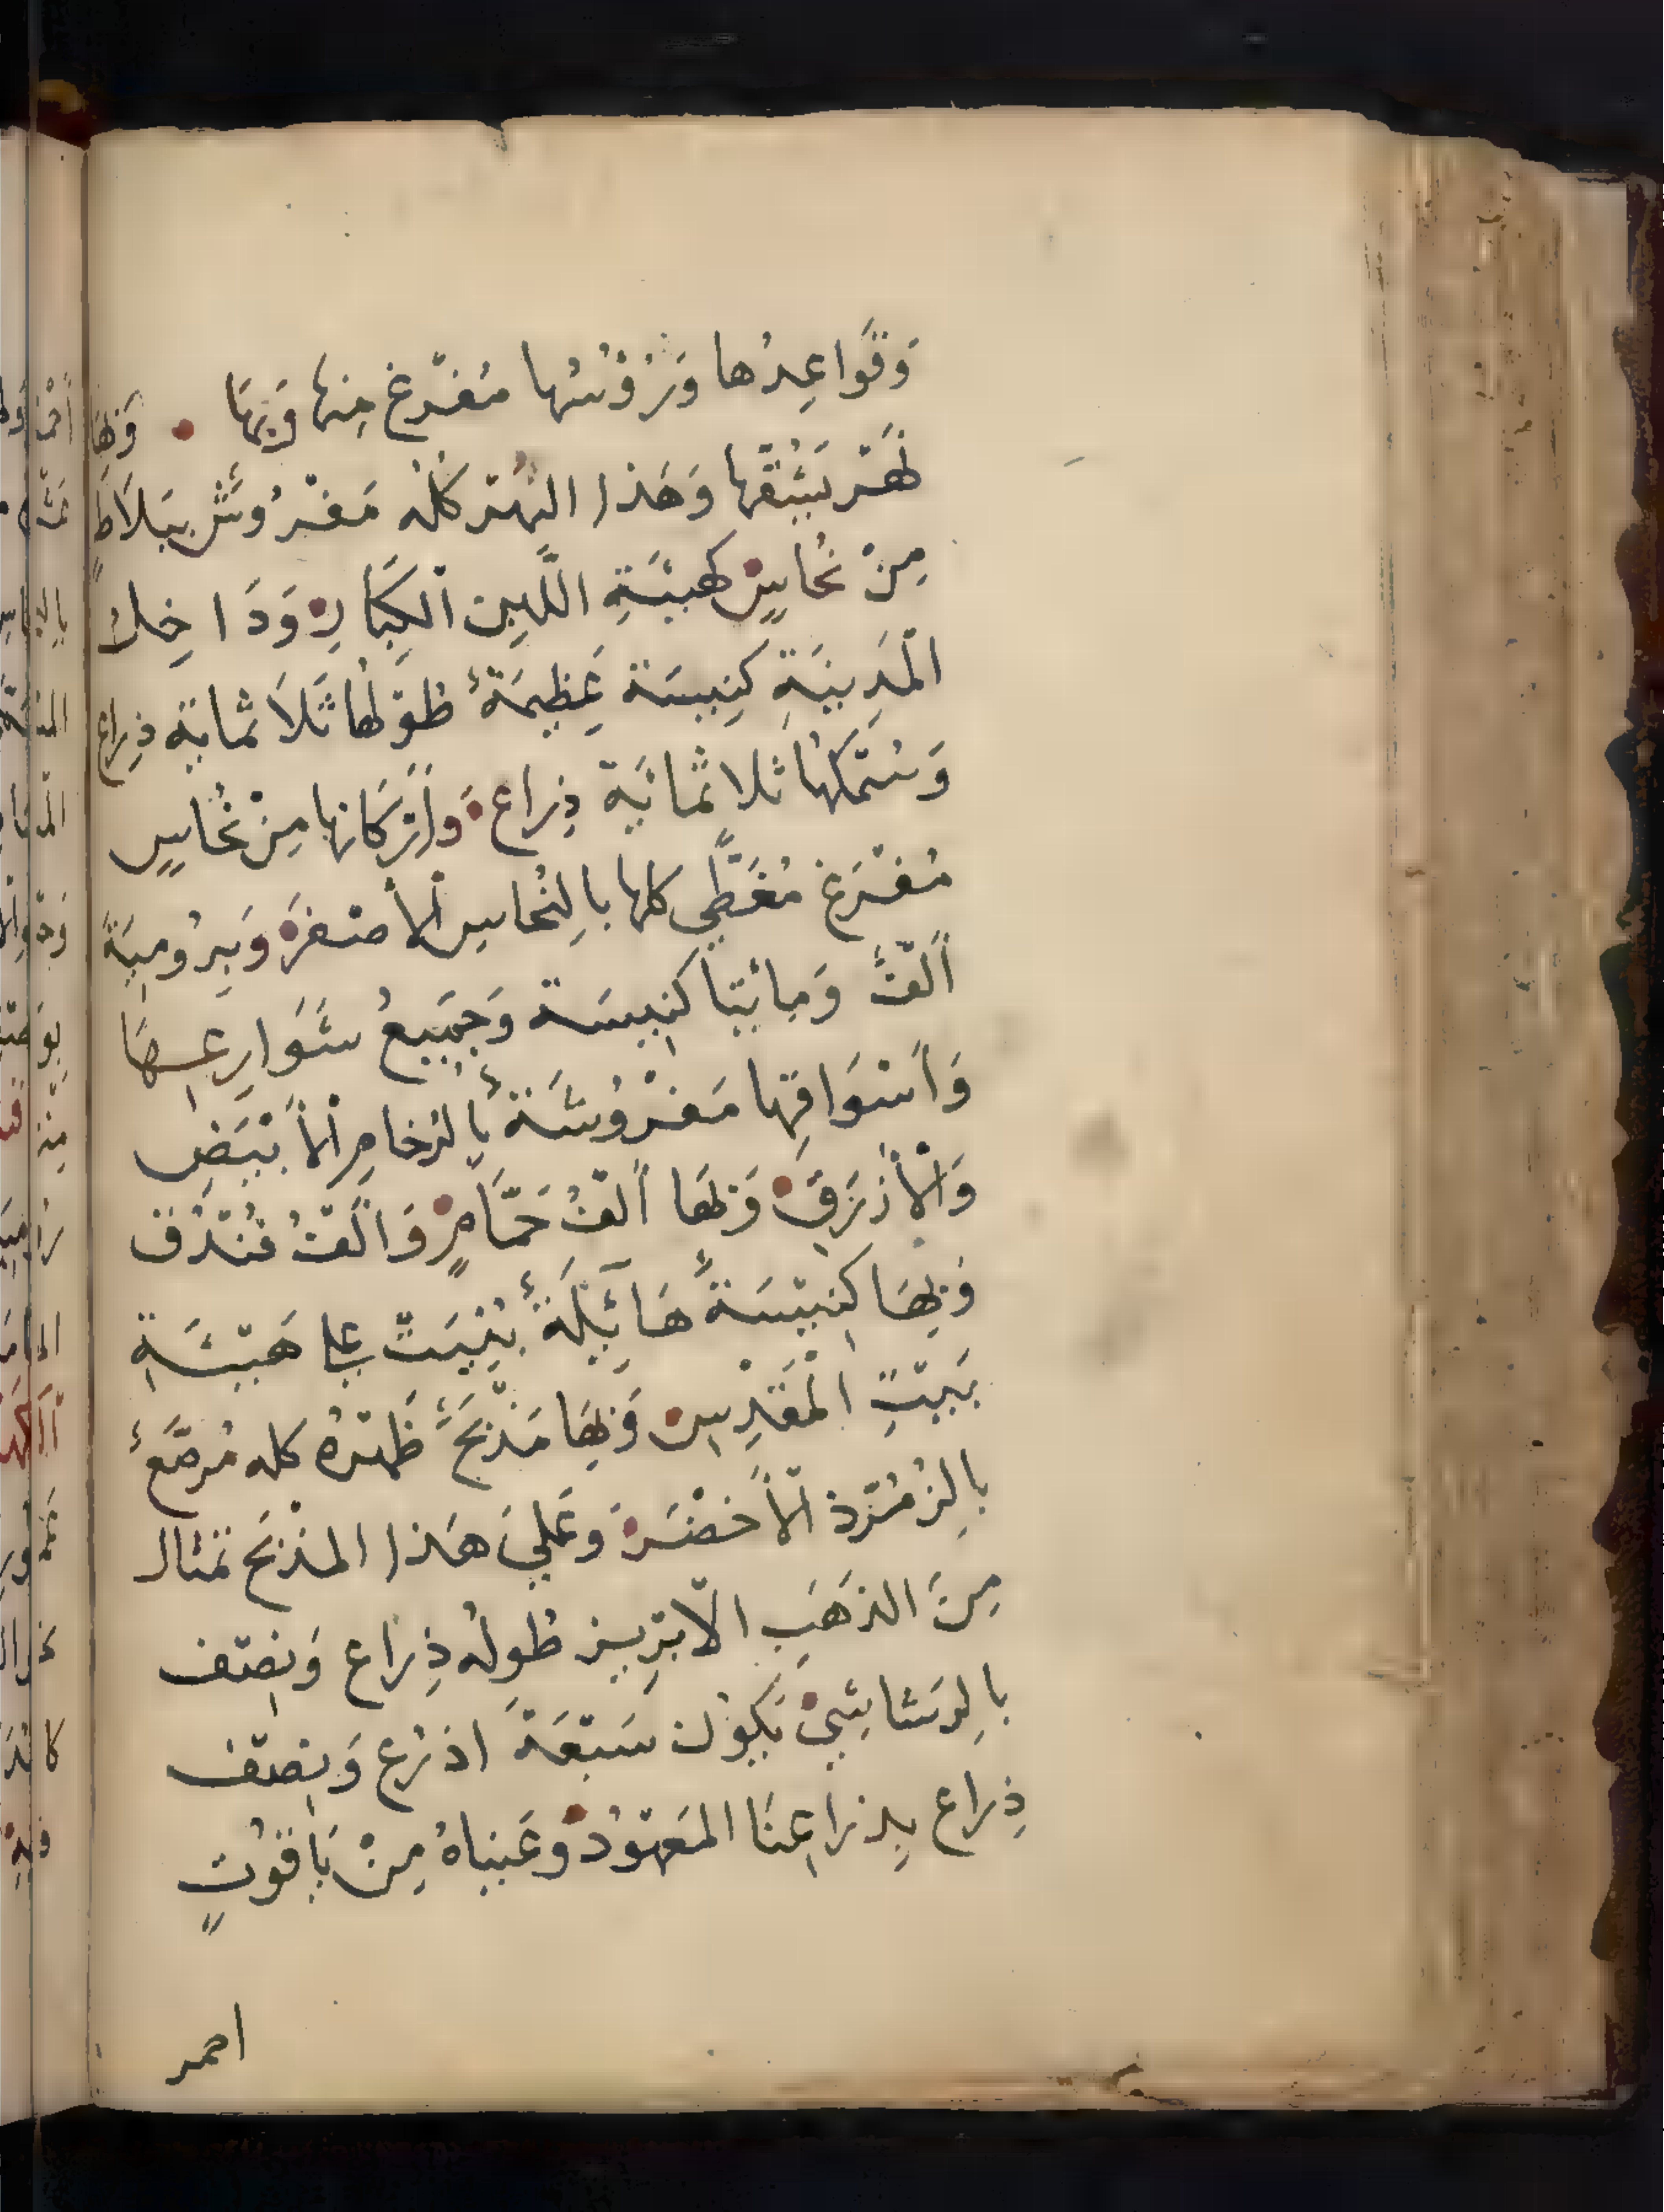 وَقَوَاعِدُها وَرُؤسُها مُفْرَغ مِنها وَبِهَا • وَبِهَا
نَهْر يَشُقّها وَهَذا النَهْر كلُه مَفْرُوش بِبَلَاطٍ
مِنْ نُحاسٍ كهيئَةِ اللَبِن الكِبَارِ وَدَاخِل
الْمَدِينَةِ كَنِيسَة عَظِيمَةٌ طُوْلُها ثَلَاثمائة ذِراع
وَسُمْكُها ثلاثمائة ذِراع وَأَرْكَانها مِنْ نُحاسٍ
مُفْرَغ مُغَطَّي كلها بالنُحاس الأَصْفَر وَبِرُومِيَة
أَلْفُ وَمائتا كنِيسَة وَجَمِيعُ شَوَارِعِهَا
وَأَسْوَاقِها مَفْرُوشَة بالرُخامِ الأَبْيَضِ
وَالْأَزْرَقِ وَبِهَا أَلْفُ حَمَّامٍ وَأَلْفُ فُنْدُق
وَبِهَا كنِيسَةٌ هَائِلَةٌ بُنِيَتْ علي هَيْئَةِ
بَيْتِ الْمَقْدِسِ وَبِهَا مَذْبَحٌ ظَهْرُهُ كله مُرصَّعٌ
بالزُمُرّذ الأَخْضَر وَعَلَيَ هَذا المذْبَح تمْثال
مِنَ الذَهَبِ الابْرِيز طُولُه ذِرَاع وَنِصْف
بالرَشاشِيْ يَكوُن سَبْعَةَ اذرُع وَنِصْف
ذِراع بِذراعِنَا المَعْهوُدْ وعَيْناهُ مِنْ يَاقوُتٍ
احمر